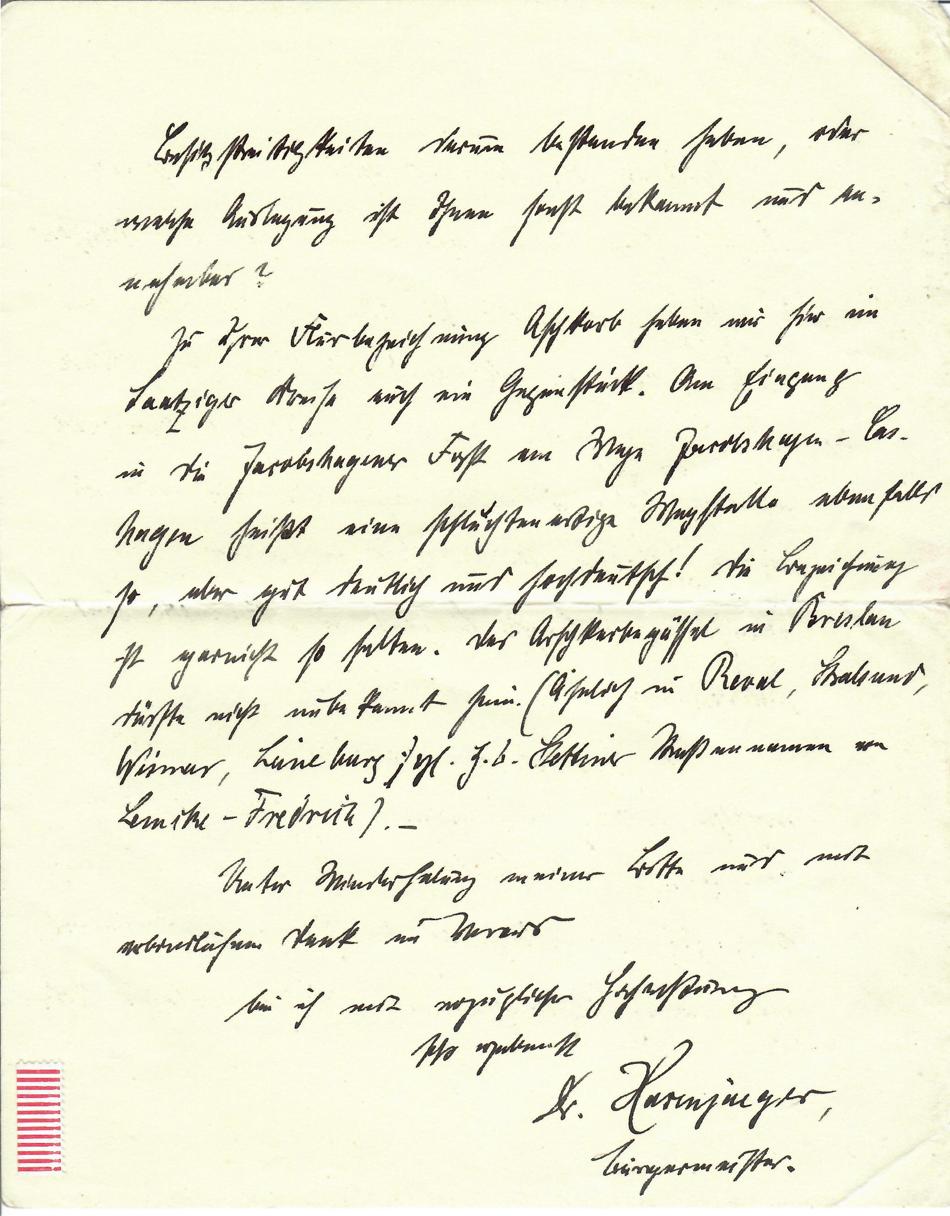 Besitzstreitigkeiten darum bestanden haben, oder
welche Auslegung ist Ihnen sonst bekannt und an-
nehmbar?
Zu Ihrer Flurbezeichnung Aschkorb haben wir hier im
Saatziger Kreise auch ein Gegenstück. Am Eingang
in die Jacobshagener Forst am Wege Jacobshagen - Cas-
hagen heißt eine schluchtenartige Wegstelle ebenfalls
so, aber gut deutlich und hochdeutsch! Die Bezeichnung
ist garnicht so selten. Das Arschkerbegässel in Breslau
dürfte nicht unbekannt sein. (Ähnlich in Reval, Stralsund,
Wismar, Lüneburg; vgl. z. B. Stettiner Straßennamen von
Lemcke - Fredrich). -
Unter Wiederholung meiner Bitte und mit
verbindlichem Dank im Voraus
bin ich mit vorzüglicher Hochachtung
sehr ergebenst
Dr.
Bürgermeister.